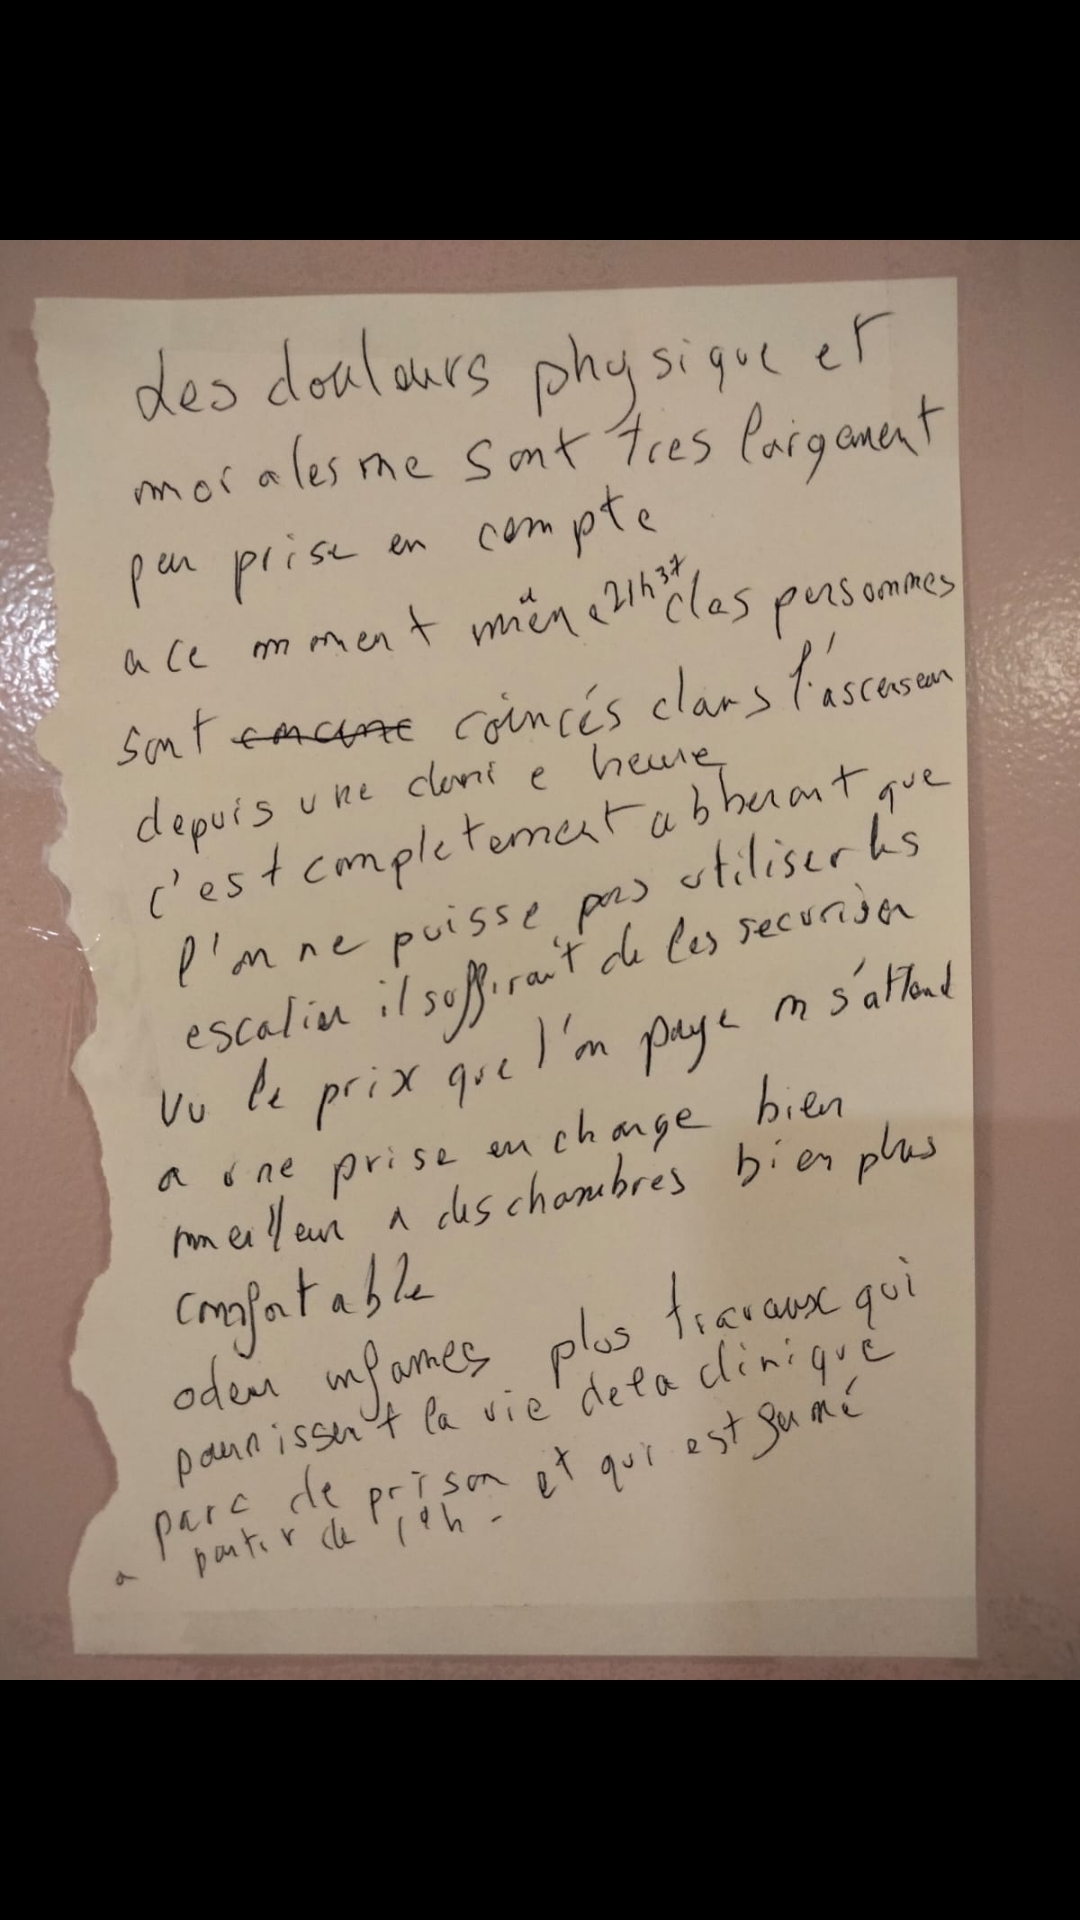 Les douleurs physique et
morales me sont tres largement
peu prise en compte
a ce moment même 21h37 des personnes
sont coincés dans l'ascenseur
depuis une demi e heure
c'est completement abberant que
l'on ne puisse pas utiliser les
escalier il suffirait de les securiser
Vu le prix que l'on paye on s'attend
a une prise en charge bien
meilleur a des chambres bien plus
confortable
odeur infames plus travaux qui
pourrissent la vie de la clinique
parc de prison et qui est fermé
a partir de h -